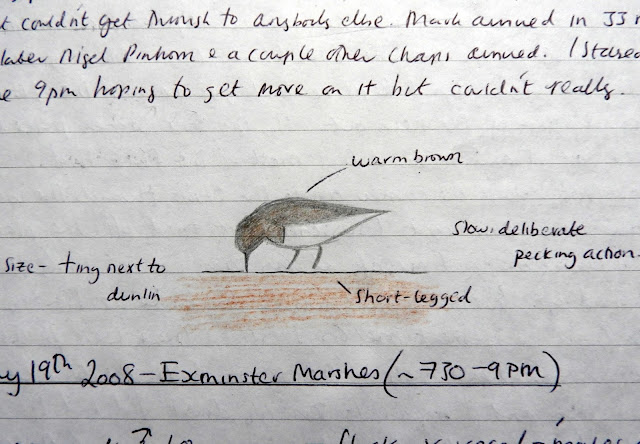 couldn't get through to anybody else. Mark arrived in 33
later Nigel Pinhorn & a couple other chaps arrived. I stayed
9pm hoping to get more on it but couldn't really.
warm brown
slow, deliberate
pecking action.
size - tiny next to
dunlin
short-legged
19th 2008 - Exminster Marshes (~730-9pm)